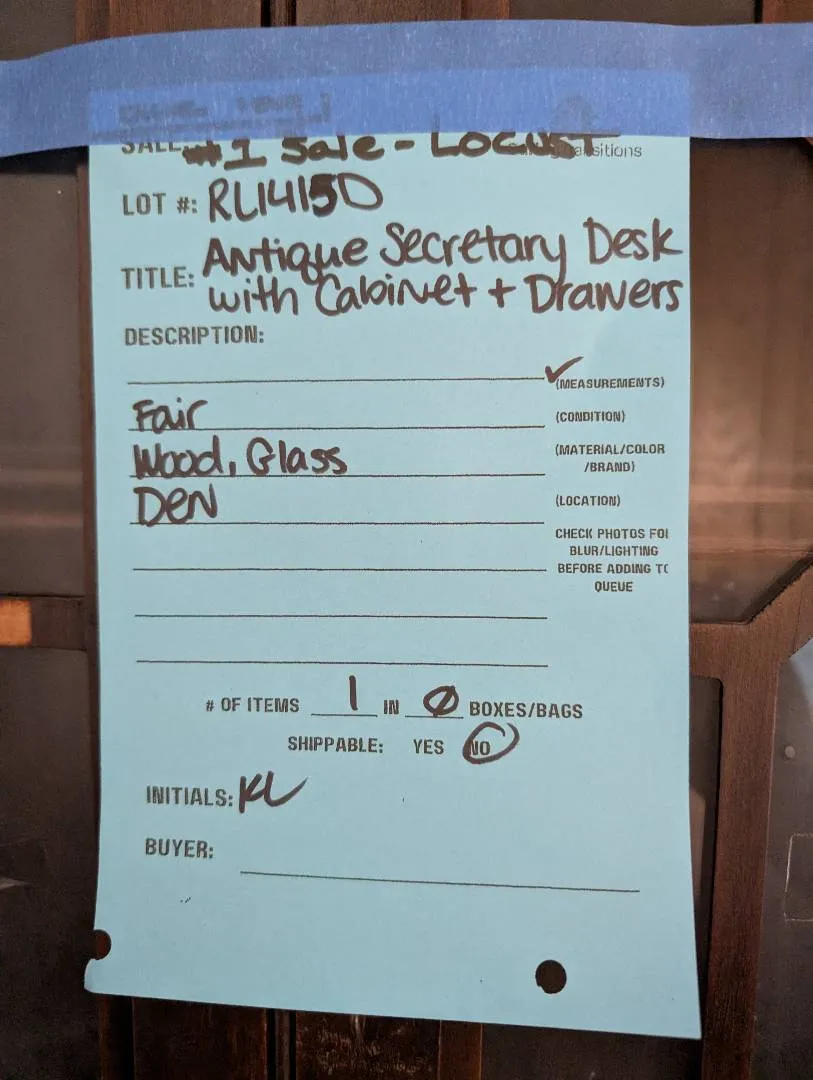 SALE: #1 Sale - LOCUST
LOT #: RL14150
TITLE: Antique Secretary Desk
with Cabinet + Drawers
DESCRIPTION:
✓ (MEASUREMENTS)
Fair (CONDITION)
Wood, Glass (MATERIAL/COLOR
/BRAND)
Den (LOCATION)
CHECK PHOTOS FOR
BLUR/LIGHTING
BEFORE ADDING TO
QUEUE
# OF ITEMS 1 IN Ø BOXES/BAGS
SHIPPABLE: YES NO
INITIALS: KL
BUYER: